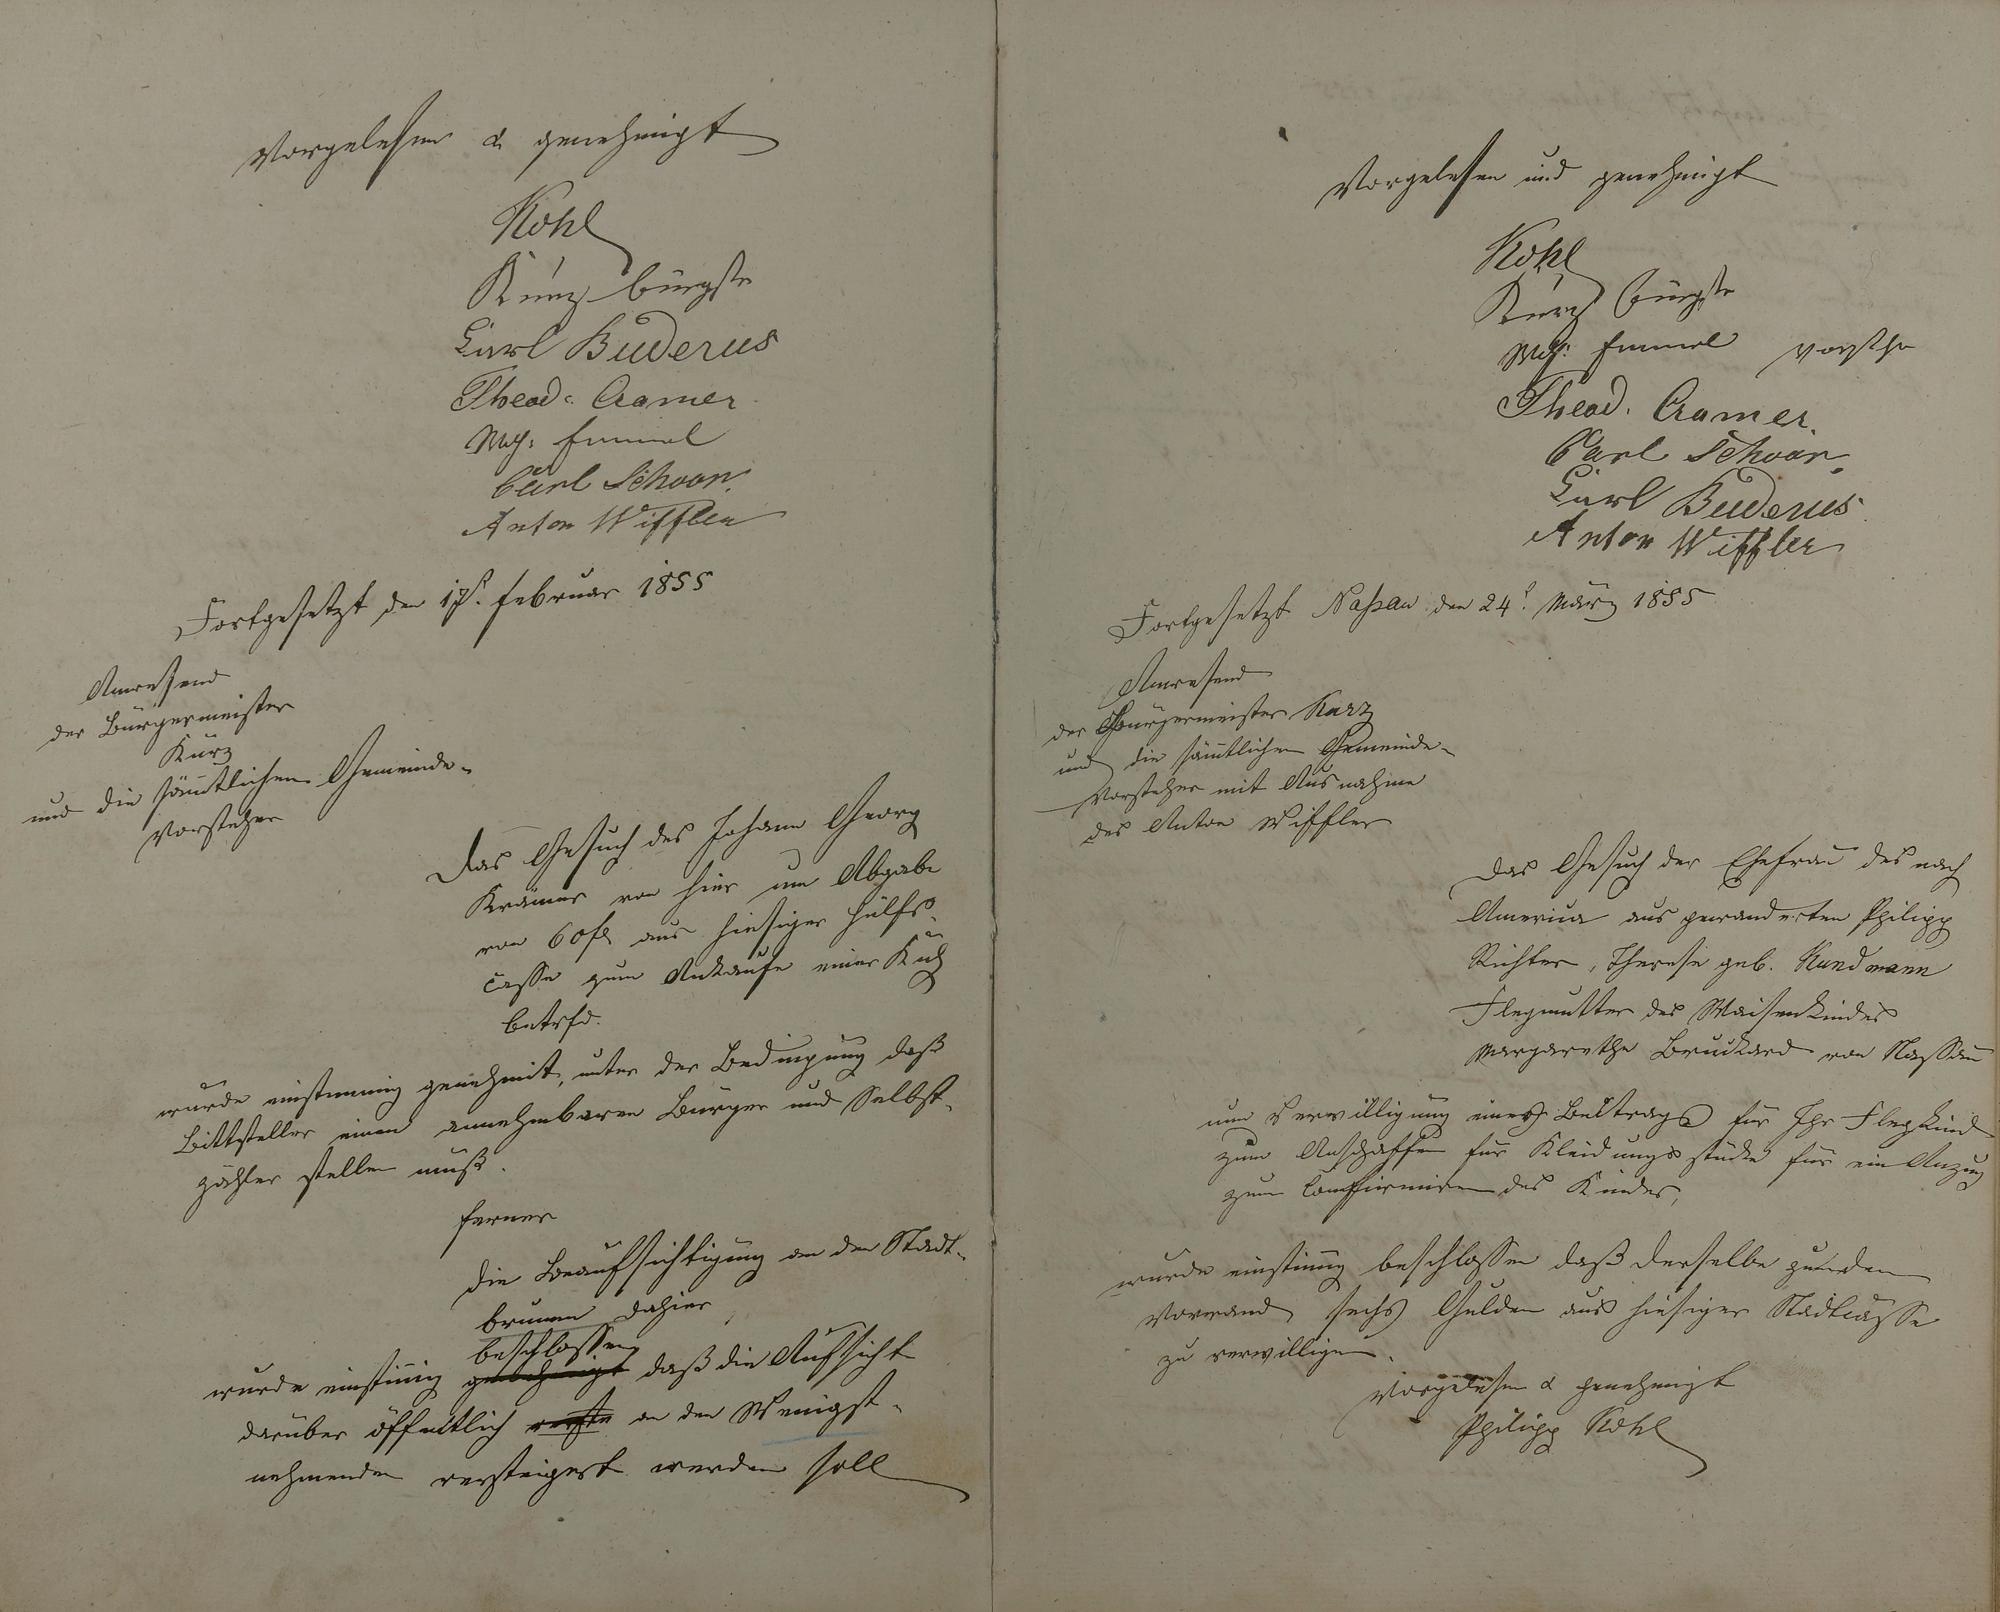 Vorgelesen & genehmigt
Kohl
Kurz Bürgstr
Carl Buderus
Theod. Cramer
Wh: Emmel
Carl Schoon.
Anton Wiffler
Fortgesetzt den Februar 1855
Anwesend
der Bürgermeister
Kurz
und die sämtlichen Gemeinde-
Vorsteher
Das Gesuch des Johann Georg
Krämer von hier um Abgabe
von 60 fl aus hiesiger Hülfs-
casse zum Ankaufe einer Kuh
betrfd.
wurde einstimmig genehmit, unter der Bedingung daß
Bittsteller einen annehmbaren Bürgen und Selbst-
zahler stellen muß.
ferner
die Beaufsichtigung an den Stadt-
brunnen dahier
beschlossen
wurde einstimig genehmigt daß die Aufsicht
darüber öffentlich an den Wenigst-
nehmenden versteigert werden soll
Vorgelesen und genehmigt
Kohl
Kurz Bürgstr
Wh: Emmel Vorsthr
Theod. Cramer.
Carl Schoon.
Carl Buderus
Anton Wiffler
Fortgesetzt Nassau den 24t März 1855
Anwesend
der Bürgermeister Kurz
und die sämtlichen Gemeinde-
Vorsteher mit Ausnahme
des Anton Wiffler
Das Gesuch der Ehefrau des nach
America aus gewanderten Philipp
Richter, Therese geb. Kundmann
Flegmutter des Waisenkindes
Margarethe Bruckard von Nassau
um Verwilligung eines Beitrags für Ihr Flegkind
zum Anschaffen für Kleidungsstücke für ein Anzug
zum Confirmiren des Kindes,
wurde einstimig beschlossen daß derselbe zu dem
Vorwand sechs Gulden aus hiesiger Stadtcasse
zu verwilligen.
Vorgelesen & genehmigt
Philipp Kohl